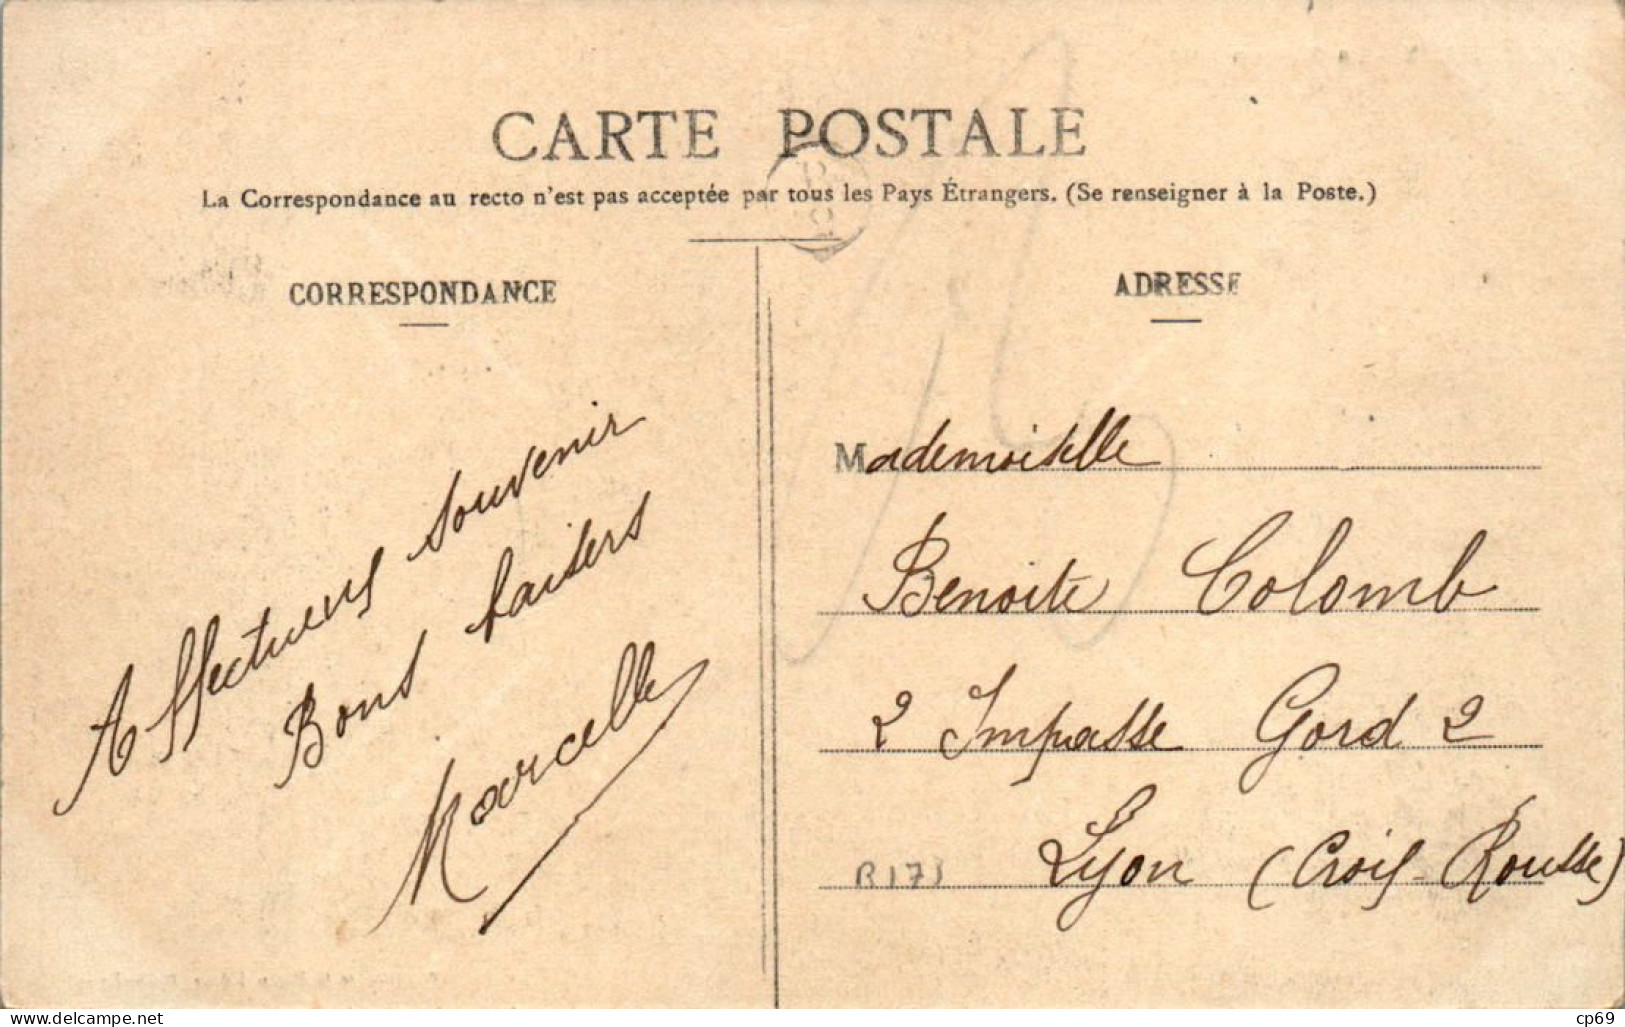 CARTE POSTALE
La Correspondance au recto n'est pas acceptée par tous les Pays Étrangers. (Se renseigner à la Poste.)
CORRESPONDANCE
Affectueux souvenir
Bons baisers
Marcelle
ADRESSE
Mademoiselle
Benoite Colomb
2 Impasse Gord 2
Lyon (Croix-Rousse)
www.delcampe.net
cp69